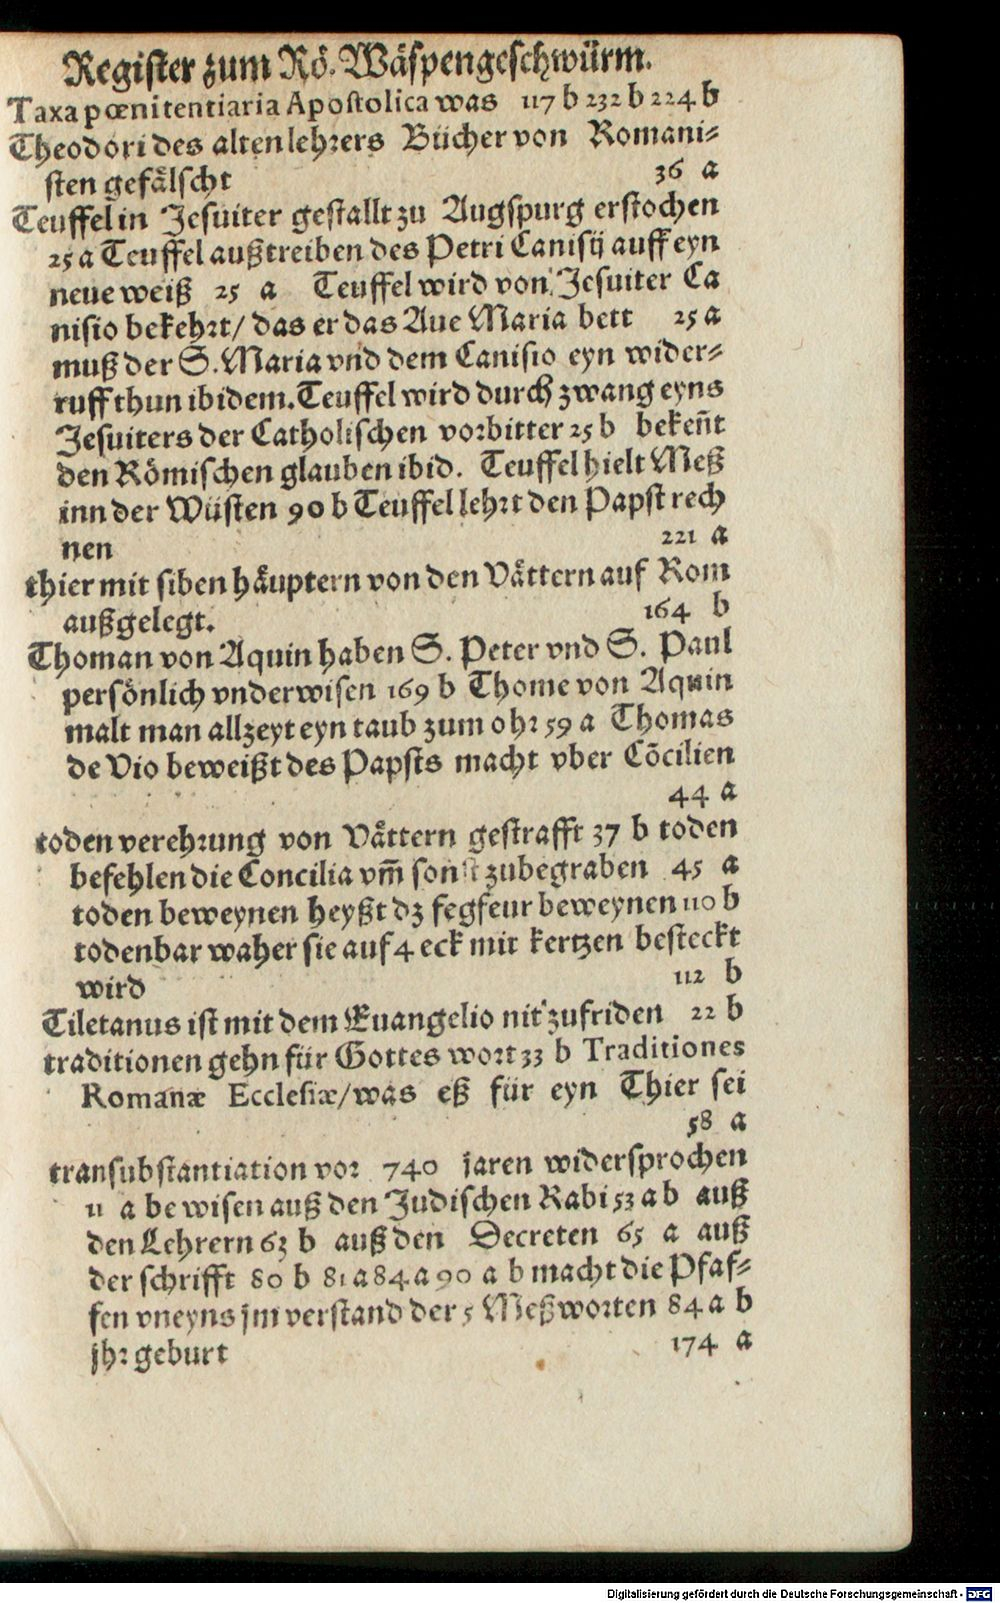 Register zum Rö. Wäspengeschwürm.
Taxa pœnitentiaria Apostolica was 117 b 232 b 224 b
Theodori des alten lehrers Bücher von Romani-
sten gefälscht 36 a
Teuffel in Jesuiter gestallt zu Augspurg erstochen
25 a Teuffel außtreiben des Petri Canisij auff eyn
neue weiß 25 a Teuffel wird von Jesuiter Ca
nisio bekehrt/ das er das Aue Maria bett 25 a
muß der S. Maria vnd dem Canisio eyn wider-
ruff thun ibidem. Teuffel wird durch zwang eyns
Jesuiters der Catholischen vorbitter 25 b bekeñt
den Römischen glauben ibid. Teuffel hielt Meß
inn der Wüsten 90 b Teuffel lehrt den Papst rech
nen 221 a
thier mit siben häuptern von den Vättern auf Rom
außgelegt. 164 b
Thoman von Aquin haben S. Peter vnd S. Paul
persönlich vnderwisen 169 b Thome von Aquin
malt man allzeyt eyn taub zum ohr 59 a Thomas
de Vio beweißt des Papsts macht vber Cõcilien
44 a
toden verehrung von Vättern gestrafft 37 b toden
befehlen die Concilia vm̃ sonst zubegraben 45 a
toden beweynen heyßt dz fegfeur beweynen 110 b
todenbar waher sie auf 4 eck mit kertzen besteckt
wird 112 b
Tiletanus ist mit dem Euangelio nit zufriden 22 b
traditionen gehn für Gottes wort 33 b Traditiones
Romanæ Ecclesiæ/ was eß für eyn Thier sei
58 a
transubstantiation vor 740 jaren widersprochen
11 a bewisen auß den Judischen Rabi 53 a b auß
den Lehrern 63 b auß den Decreten 65 a auß
der schrifft 80 b 81 a 84 a 90 a b macht die Pfaf-
fen vneyns jm verstand der 5 Meßworten 84 a b
jhr geburt 174 a
Digitalisierung gefördert durch die Deutsche Forschungsgemeinschaft - DFG